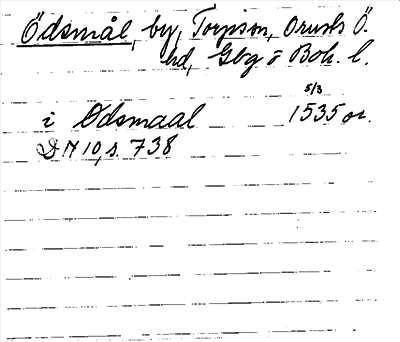 Ödsmål, by, Torpson, Orusts Ö.
hd, Gbg o Boh. l.
5/3
i Ødsmaal 1535 or.
DN 10, s. 738